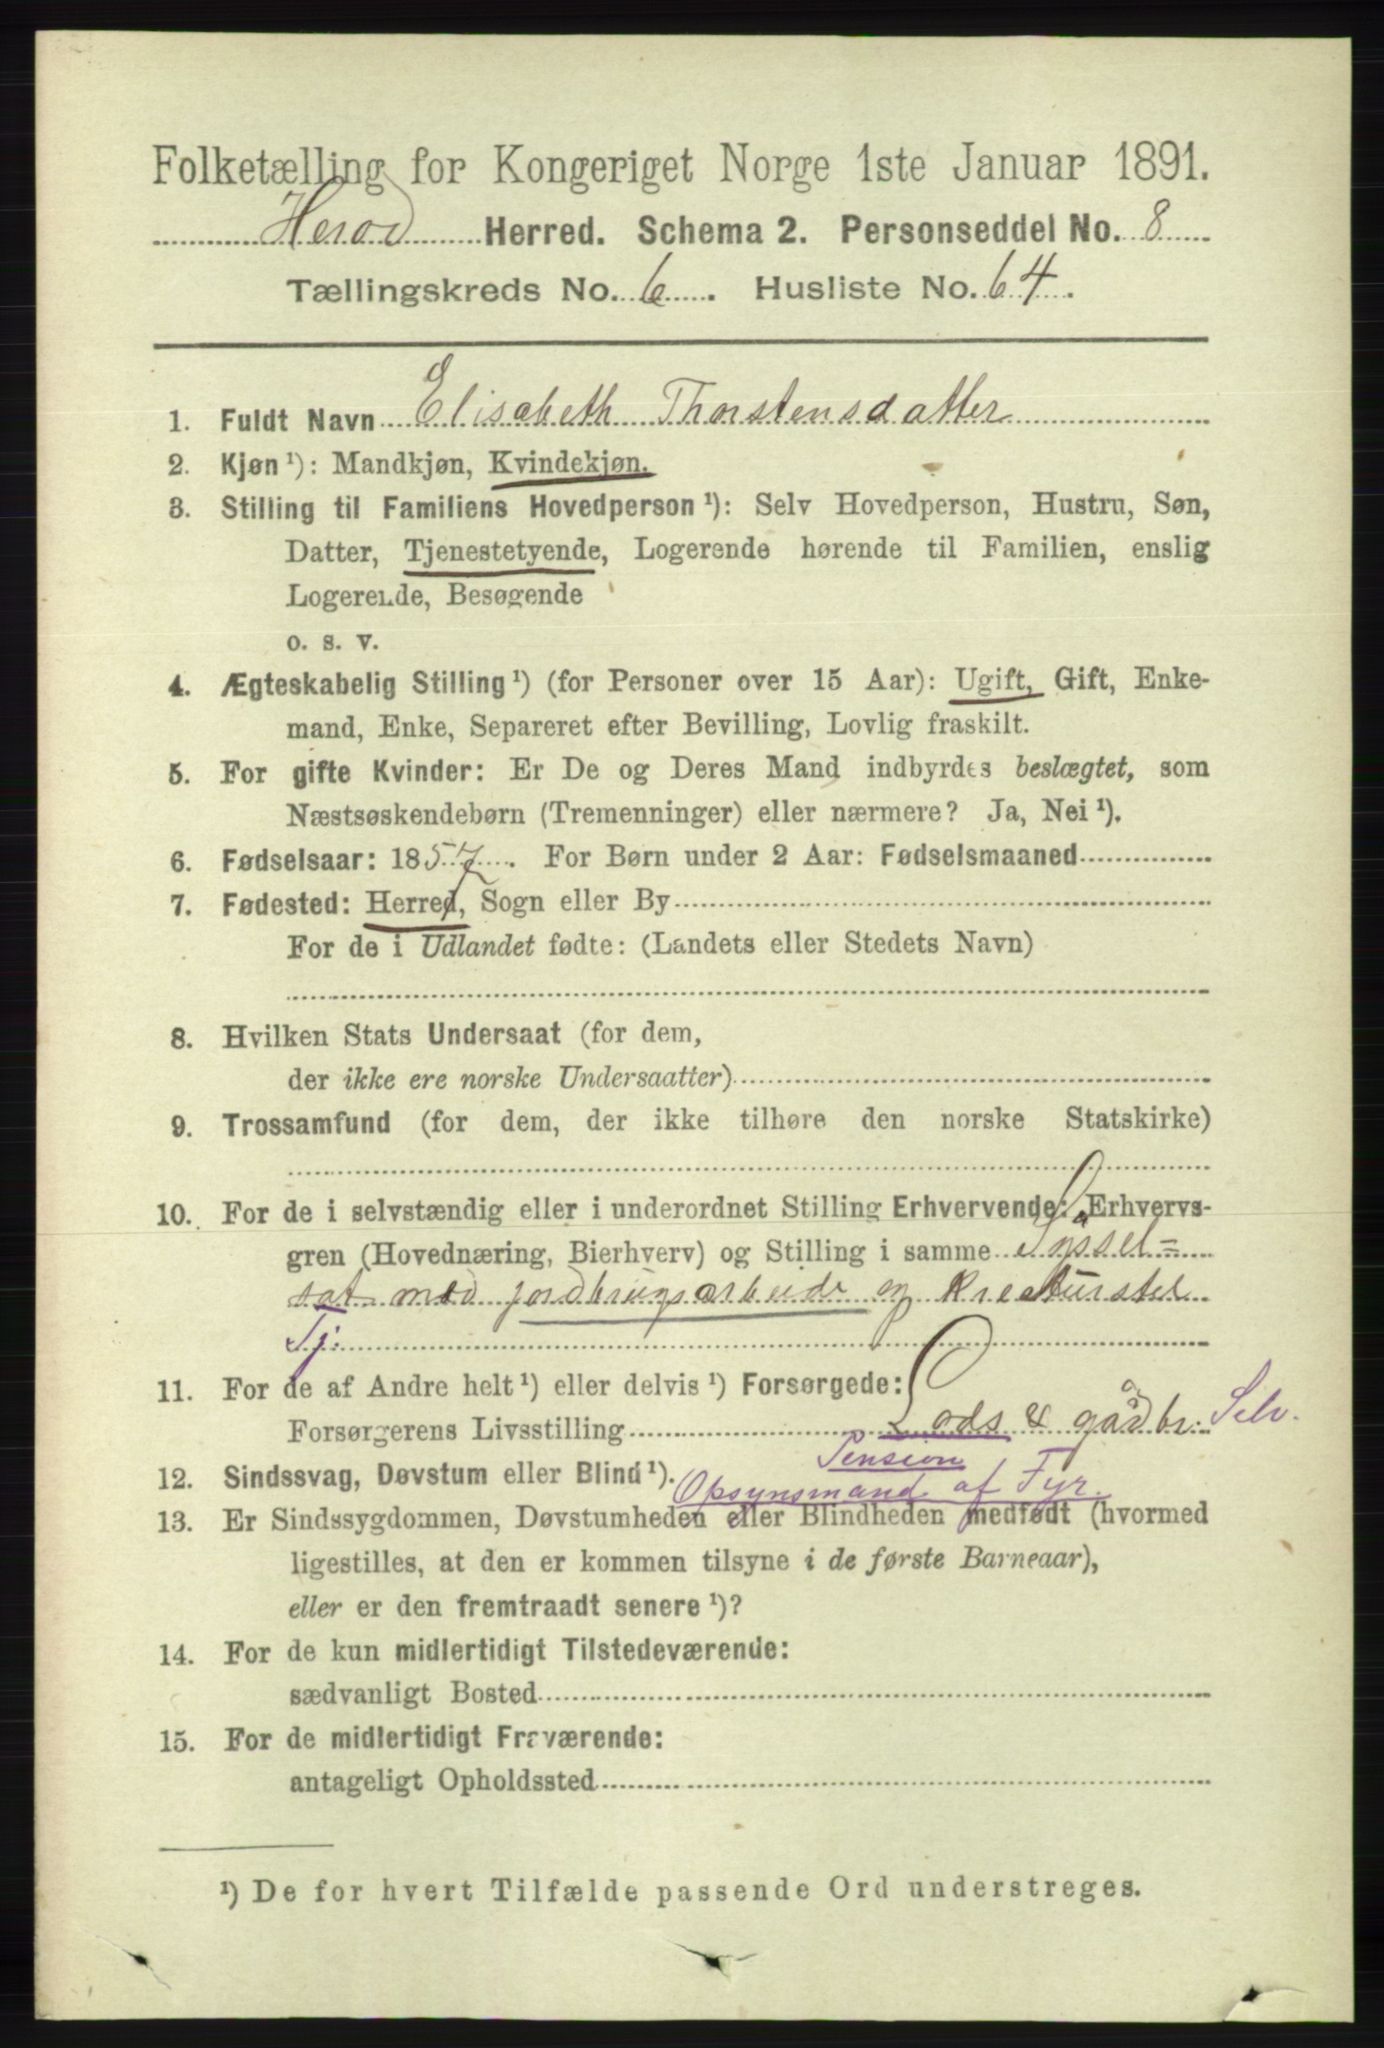 Folketælling for Kongeriget Norge 1ste Januar 1891.
Herød Herred. Schema 2. Personseddel No. 8
Tællingskreds No. 6. Husliste No. 64.
1. Fuldt Navn Elisabeth Thorstensdatter
2. Kjøn ¹): Mandkjøn, Kvindekjøn.
3. Stilling til Familiens Hovedperson ¹): Selv Hovedperson, Hustru, Søn,
Datter, Tjenestetyende, Logerende hørende til Familien, enslig
Logerende, Besøgende
o. s. v.
4. Ægteskabelig Stilling ¹) (for Personer over 15 Aar): Ugift, Gift, Enke-
mand, Enke, Separeret efter Bevilling, Lovlig fraskilt.
5. For gifte Kvinder: Er De og Deres Mand indbyrdes beslægtet, som
Næstsøskendebørn (Tremenninger) eller nærmere? Ja, Nei ¹).
6. Fødselsaar: 1857. For Børn under 2 Aar: Fødselsmaaned
7. Fødested: Herred, Sogn eller By
For de i Udlandet fødte: (Landets eller Stedets Navn)
8. Hvilken Stats Undersaat (for dem,
der ikke ere norske Undersaatter)
9. Trossamfund (for dem, der ikke tilhøre den norske Statskirke)
10. For de i selvstændig eller i underordnet Stilling Erhvervende: Erhvervs-
gren (Hovednæring, Bierhverv) og Stilling i samme Syssel=
sat med jordbrugsarbeide og kreaturstel
Tj.
11. For de af Andre helt ¹) eller delvis ¹) Forsørgede:
Forsørgerens Livsstilling Lods & gådbr. Selv.
Pension
12. Sindssvag, Døvstum eller Blind ¹). Opsynsmand af Fyr.
13. Er Sindssygdommen, Døvstumheden eller Blindheden medfødt (hvormed
ligestilles, at den er kommen tilsyne i de første Barneaar),
eller er den fremtraadt senere ¹)?
14. For de kun midlertidigt Tilstedeværende:
sædvanligt Bosted
15. For de midlertidigt Fraværende:
antageligt Opholdssted
¹) De for hvert Tilfælde passende Ord understreges.